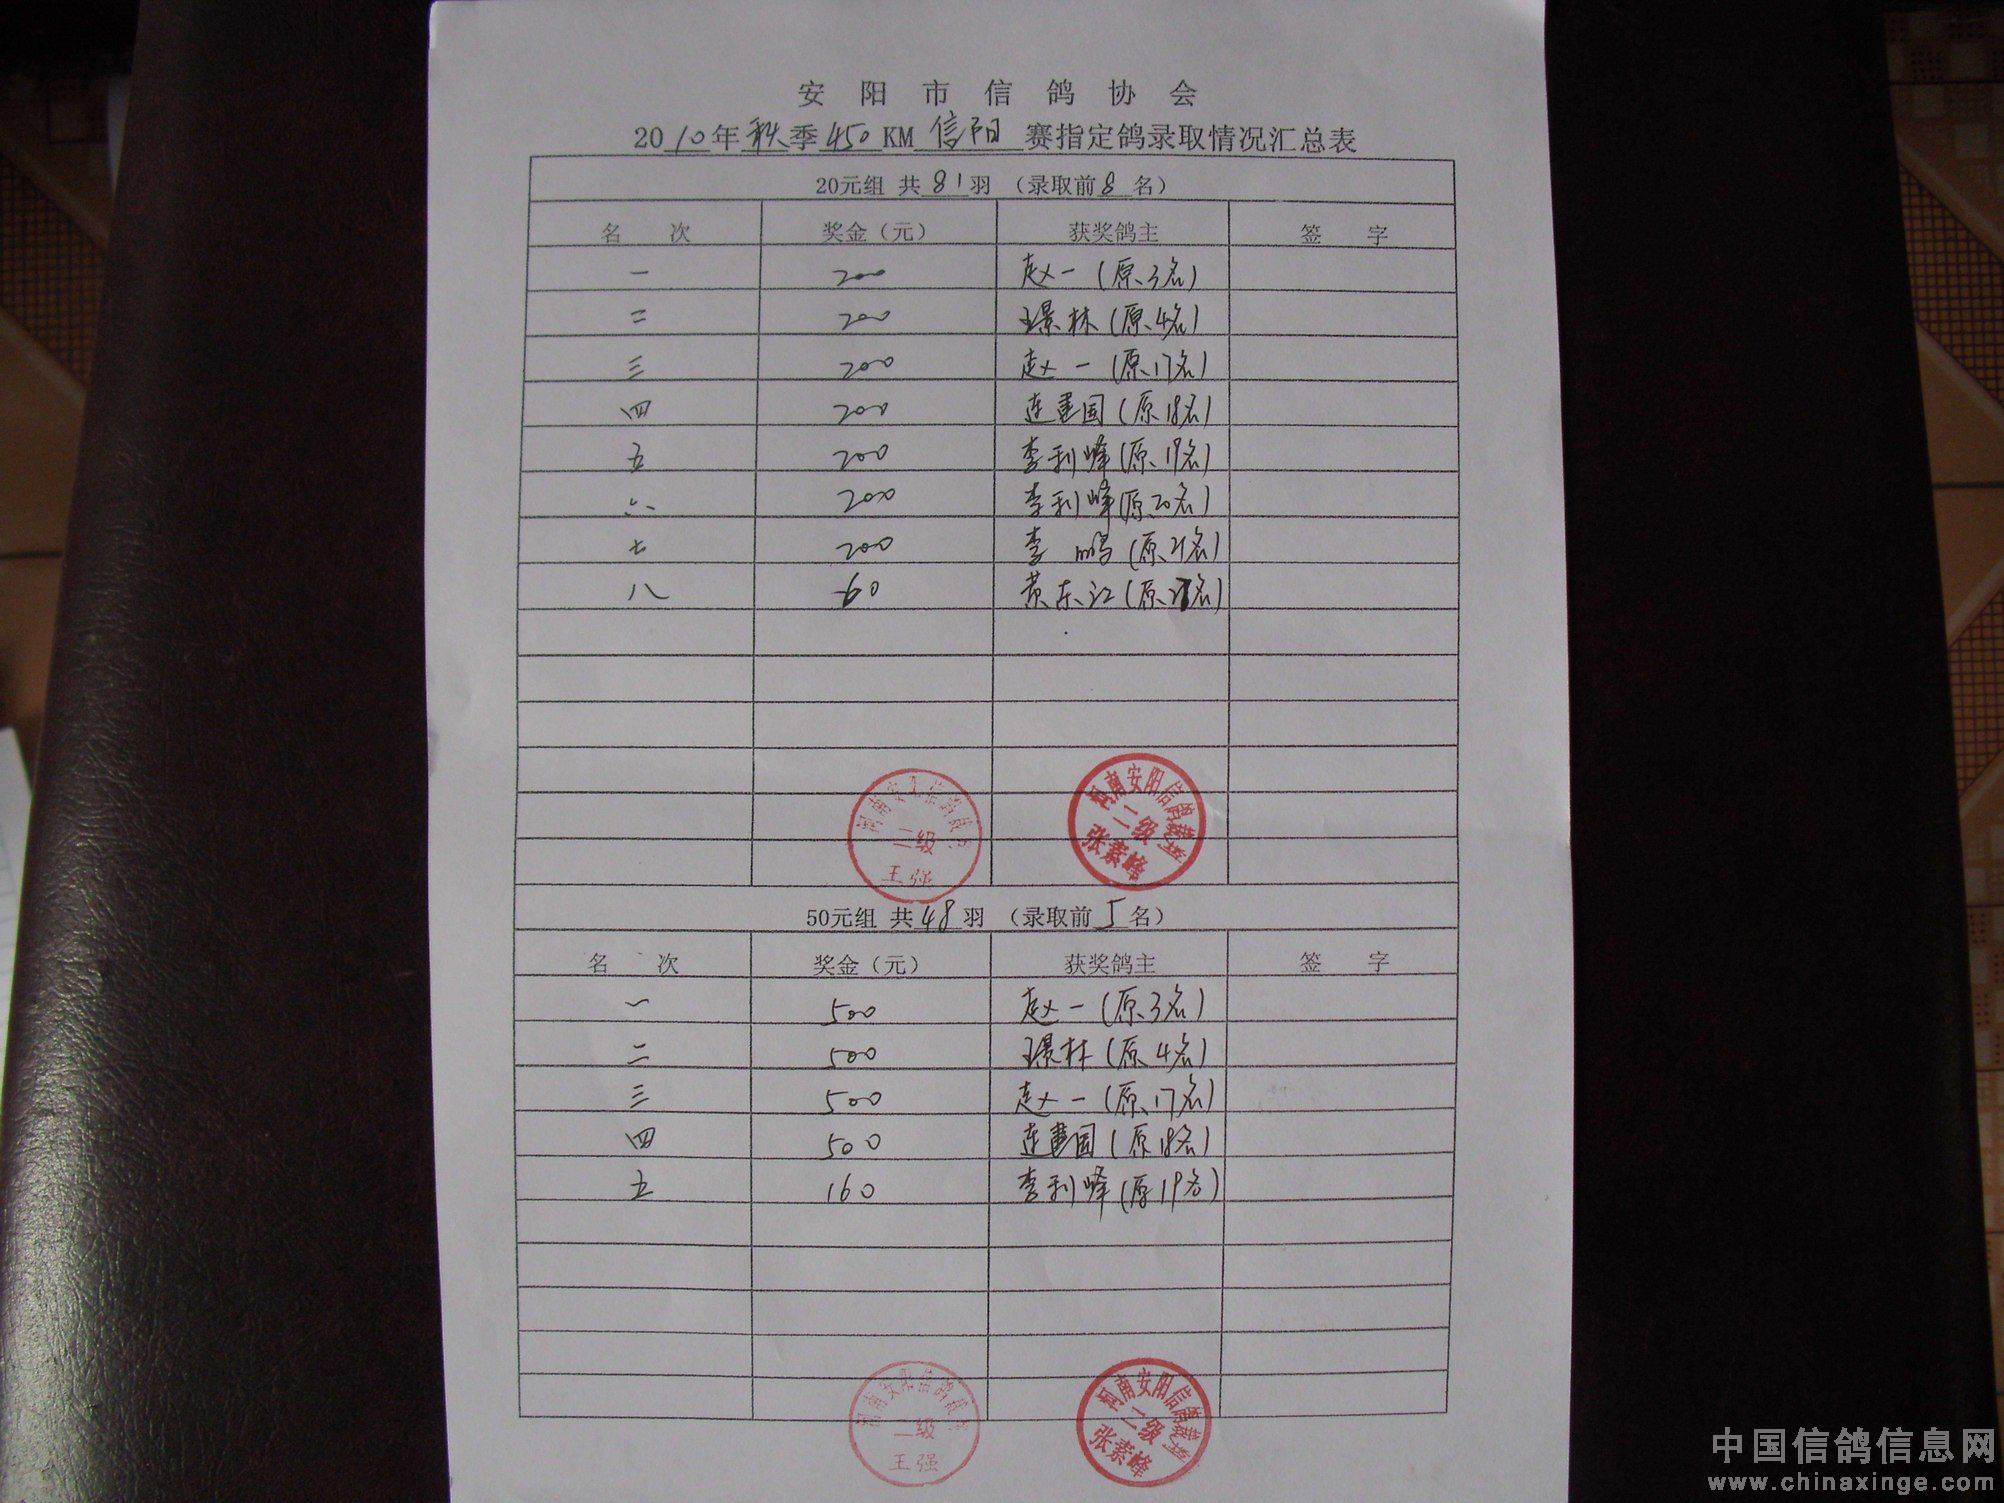 安阳市信鸽协会
2010年秋季450KM信阳 赛指定鸽录取情况汇总表
20元组 共81羽 （录取前8名）
名 次 奖金（元） 获奖鸽主 签 字
一 200 赵一（原3名）
二 200 王景林（原4名）
三 200 赵一（原17名）
四 200 连建国（原18名）
五 200 李利峰（原19名）
六 200 李利峰（原20名）
七 200 李鹏（原21名）
八 60 黄东江（原27名）
河南安阳信鸽裁判
二级
王强
河南安阳信鸽裁判
二级
张素峰
50元组 共48羽 （录取前5名）
名 次 奖金（元） 获奖鸽主 签 字
一 500 赵一（原3名）
二 500 王景林（原4名）
三 500 赵一（原17名）
四 500 连建国（原18名）
五 160 李利峰（原19名）
河南安阳信鸽裁判
二级
王强
河南安阳信鸽裁判
二级
张素峰
中国信鸽信息网
www.chinaxinge.com